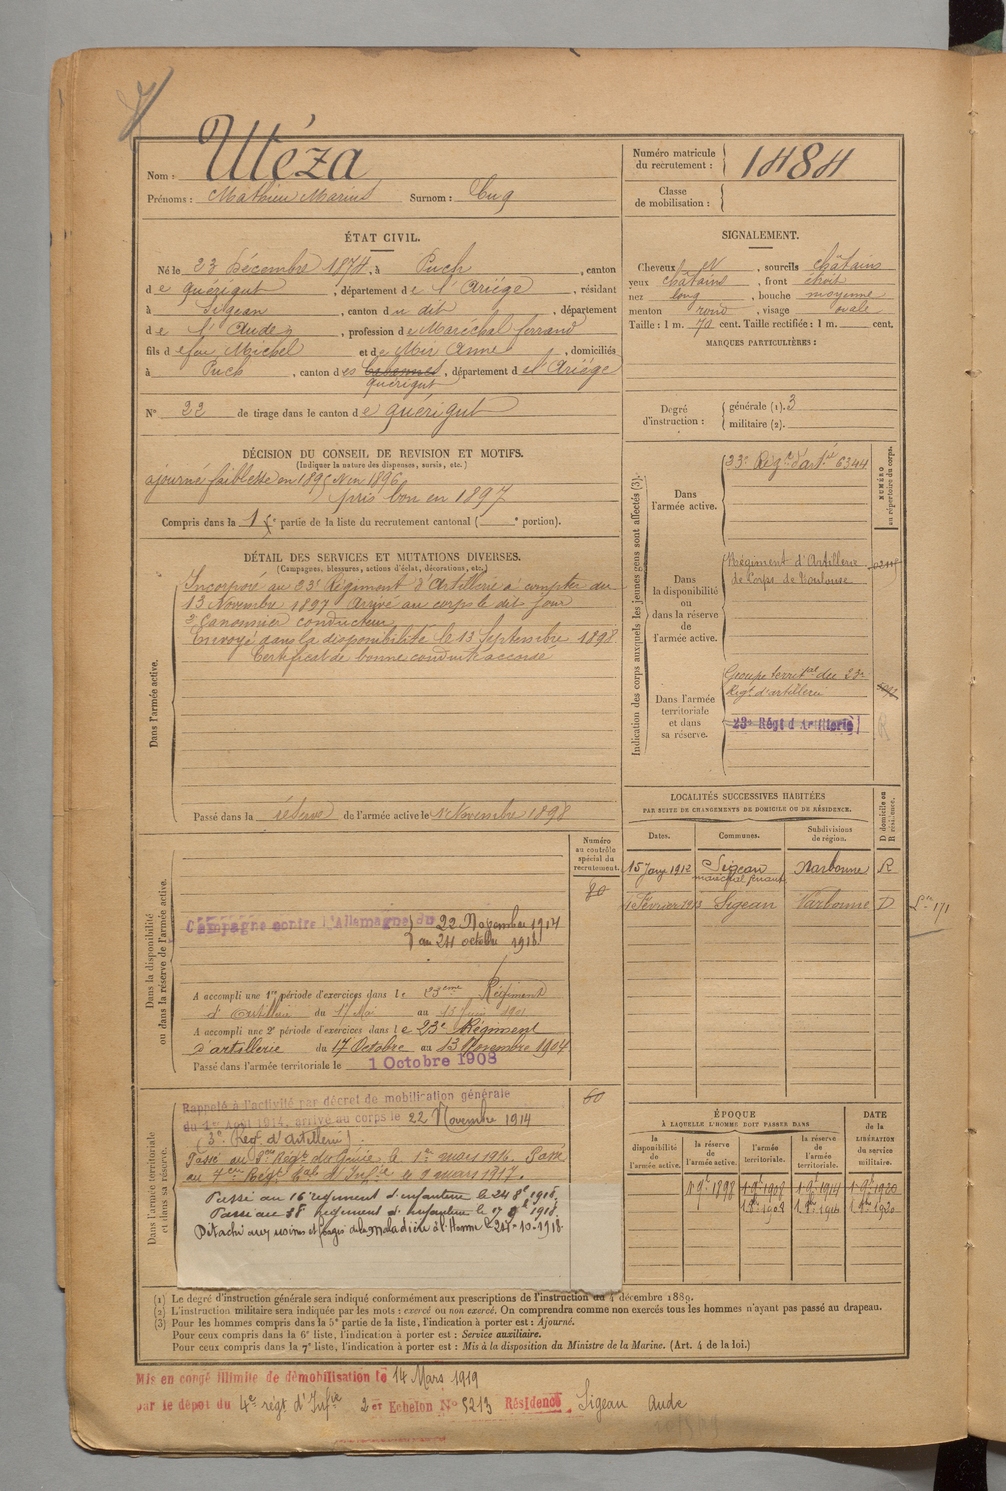 Nom : Utéza
Prénoms : Mathieu Marius Surnom : Cug
Numéro matricule du recrutement : 1484
Classe de mobilisation :
ÉTAT CIVIL.
Né le 23 Décembre 1874, à Puch, canton
de Quérigut, département de l'Ariége, résidant
à Sigean, canton du dit, département
de l'Aude, profession de Maréchal ferrand
fils de feu Michel et de Mir Anne, domiciliés
à Puch, canton des Cabannes, département de l'Ariége
Quérigut
N° 22 de tirage dans le canton de Quérigut
SIGNALEMENT.
Cheveux N, sourcils châtains
yeux châtains, front étroit
nez long, bouche moyenne
menton rond, visage ovale
Taille : 1 m. 71 cent. Taille rectifiée : 1 m. cent.
MARQUES PARTICULIÈRES :
Degré d'instruction :
générale (1). 3
militaire (2).
DÉCISION DU CONSEIL DE REVISION ET MOTIFS.
(Indiquer la nature des dispenses, sursis, etc.)
ajourné faiblesse en 1895 N en 1896
pris bon en 1897
Compris dans la 1e partie de la liste du recrutement cantonal ( e portion).
DÉTAIL DES SERVICES ET MUTATIONS DIVERSES.
(Campagnes, blessures, actions d'éclat, décorations, etc.)
Dans l'armée active.
Incorporé au 23e Régiment d'Artillerie à compter du
13 Novembre 1897 Arrivé au corps le dit jour
2e Canonnier conducteur
Envoyé dans la disponibilité le 13 Septembre 1898
Certificat de bonne conduite accordé
Passé dans la réserve de l'armée active le 1er Novembre 1898
Indication des corps auxquels les jeunes gens sont affectés (3).
NUMÉRO au répertoire du corps.
Dans l'armée active.
23e Régt d'artie 6344
Dans la disponibilité ou dans la réserve de l'armée active.
Régiment d'Artillerie
de Corps de Toulouse
Dans l'armée territoriale et dans sa réserve.
Groupe territal du 23e
Régt d'artillerie
23e Régt d'Artillerie
R
LOCALITÉS SUCCESSIVES HABITÉES
PAR SUITE DE CHANGEMENTS DE DOMICILE OU DE RÉSIDENCE.
Dates. Communes. Subdivisions de région. D domicile ou R résidence.
15 Janv 1912 Sigean Narbonne R
maréchal ferrant
Sigean Narbonne D
Numéro au contrôle spécial du recrutement.
80
Dans la disponibilité ou dans la réserve de l'armée active.
Campagne contre l'Allemagne du 22 Novembre 1914
au 24 octobre 1918
A accompli une 1re période d'exercices dans le 23eme Régiment
d'Artillerie du 17 Mai au 13 Juin 1901
A accompli une 2e période d'exercices dans le 23e Régiment
d'artillerie du 17 Octobre au 13 Novembre 1904
Passé dans l'armée territoriale le 1 Octobre 1908
Dans l'armée territoriale et dans sa réserve.
60
Rappelé à l'activité par décret de mobilisation générale
du 1er Août 1914, arrivé au corps le 22 Novembre 1914
(3e Régt d'Artillerie)
Passé au Régt du Génie le 1er mars 1916. Passé
au Régt d'Infie le 9 mars 1917.
Passé au 16e régiment d'infanterie le 1918.
Passé au 38e Régiment d'Infanterie le 1918.
Détaché aux usines et forges de la Maladière à l'Homme le 24-10-1918
ÉPOQUE
À LAQUELLE L'HOMME DOIT PASSER DANS
la disponibilité de l'armée active. la réserve de l'armée active. l'armée territoriale. la réserve de l'armée territoriale.
DATE de la LIBÉRATION du service militaire.
1 9e 1898 1 9e 1908 1 9e 1914 1 9e 1920
1 8e 1908 1 8e 1914 1 8e 1920
(1) Le degré d'instruction générale sera indiqué conformément aux prescriptions de l'instruction du 4 décembre 1889.
(2) L'instruction militaire sera indiquée par les mots : exercé ou non exercé. On comprendra comme non exercés tous les hommes n'ayant pas passé au drapeau.
(3) Pour les hommes compris dans la 5e partie de la liste, l'indication à porter est : Ajourné.
Pour ceux compris dans la 6e liste, l'indication à porter est : Service auxiliaire.
Pour ceux compris dans la 7e liste, l'indication à porter est : Mis à la disposition du Ministre de la Marine. (Art. 4 de la loi.)
Mis en congé illimité de démobilisation le 14 Mars 1919
par le dépôt du 4e régt d'Infie 2er Echelon N° 5213 Résidence Sigean Aude